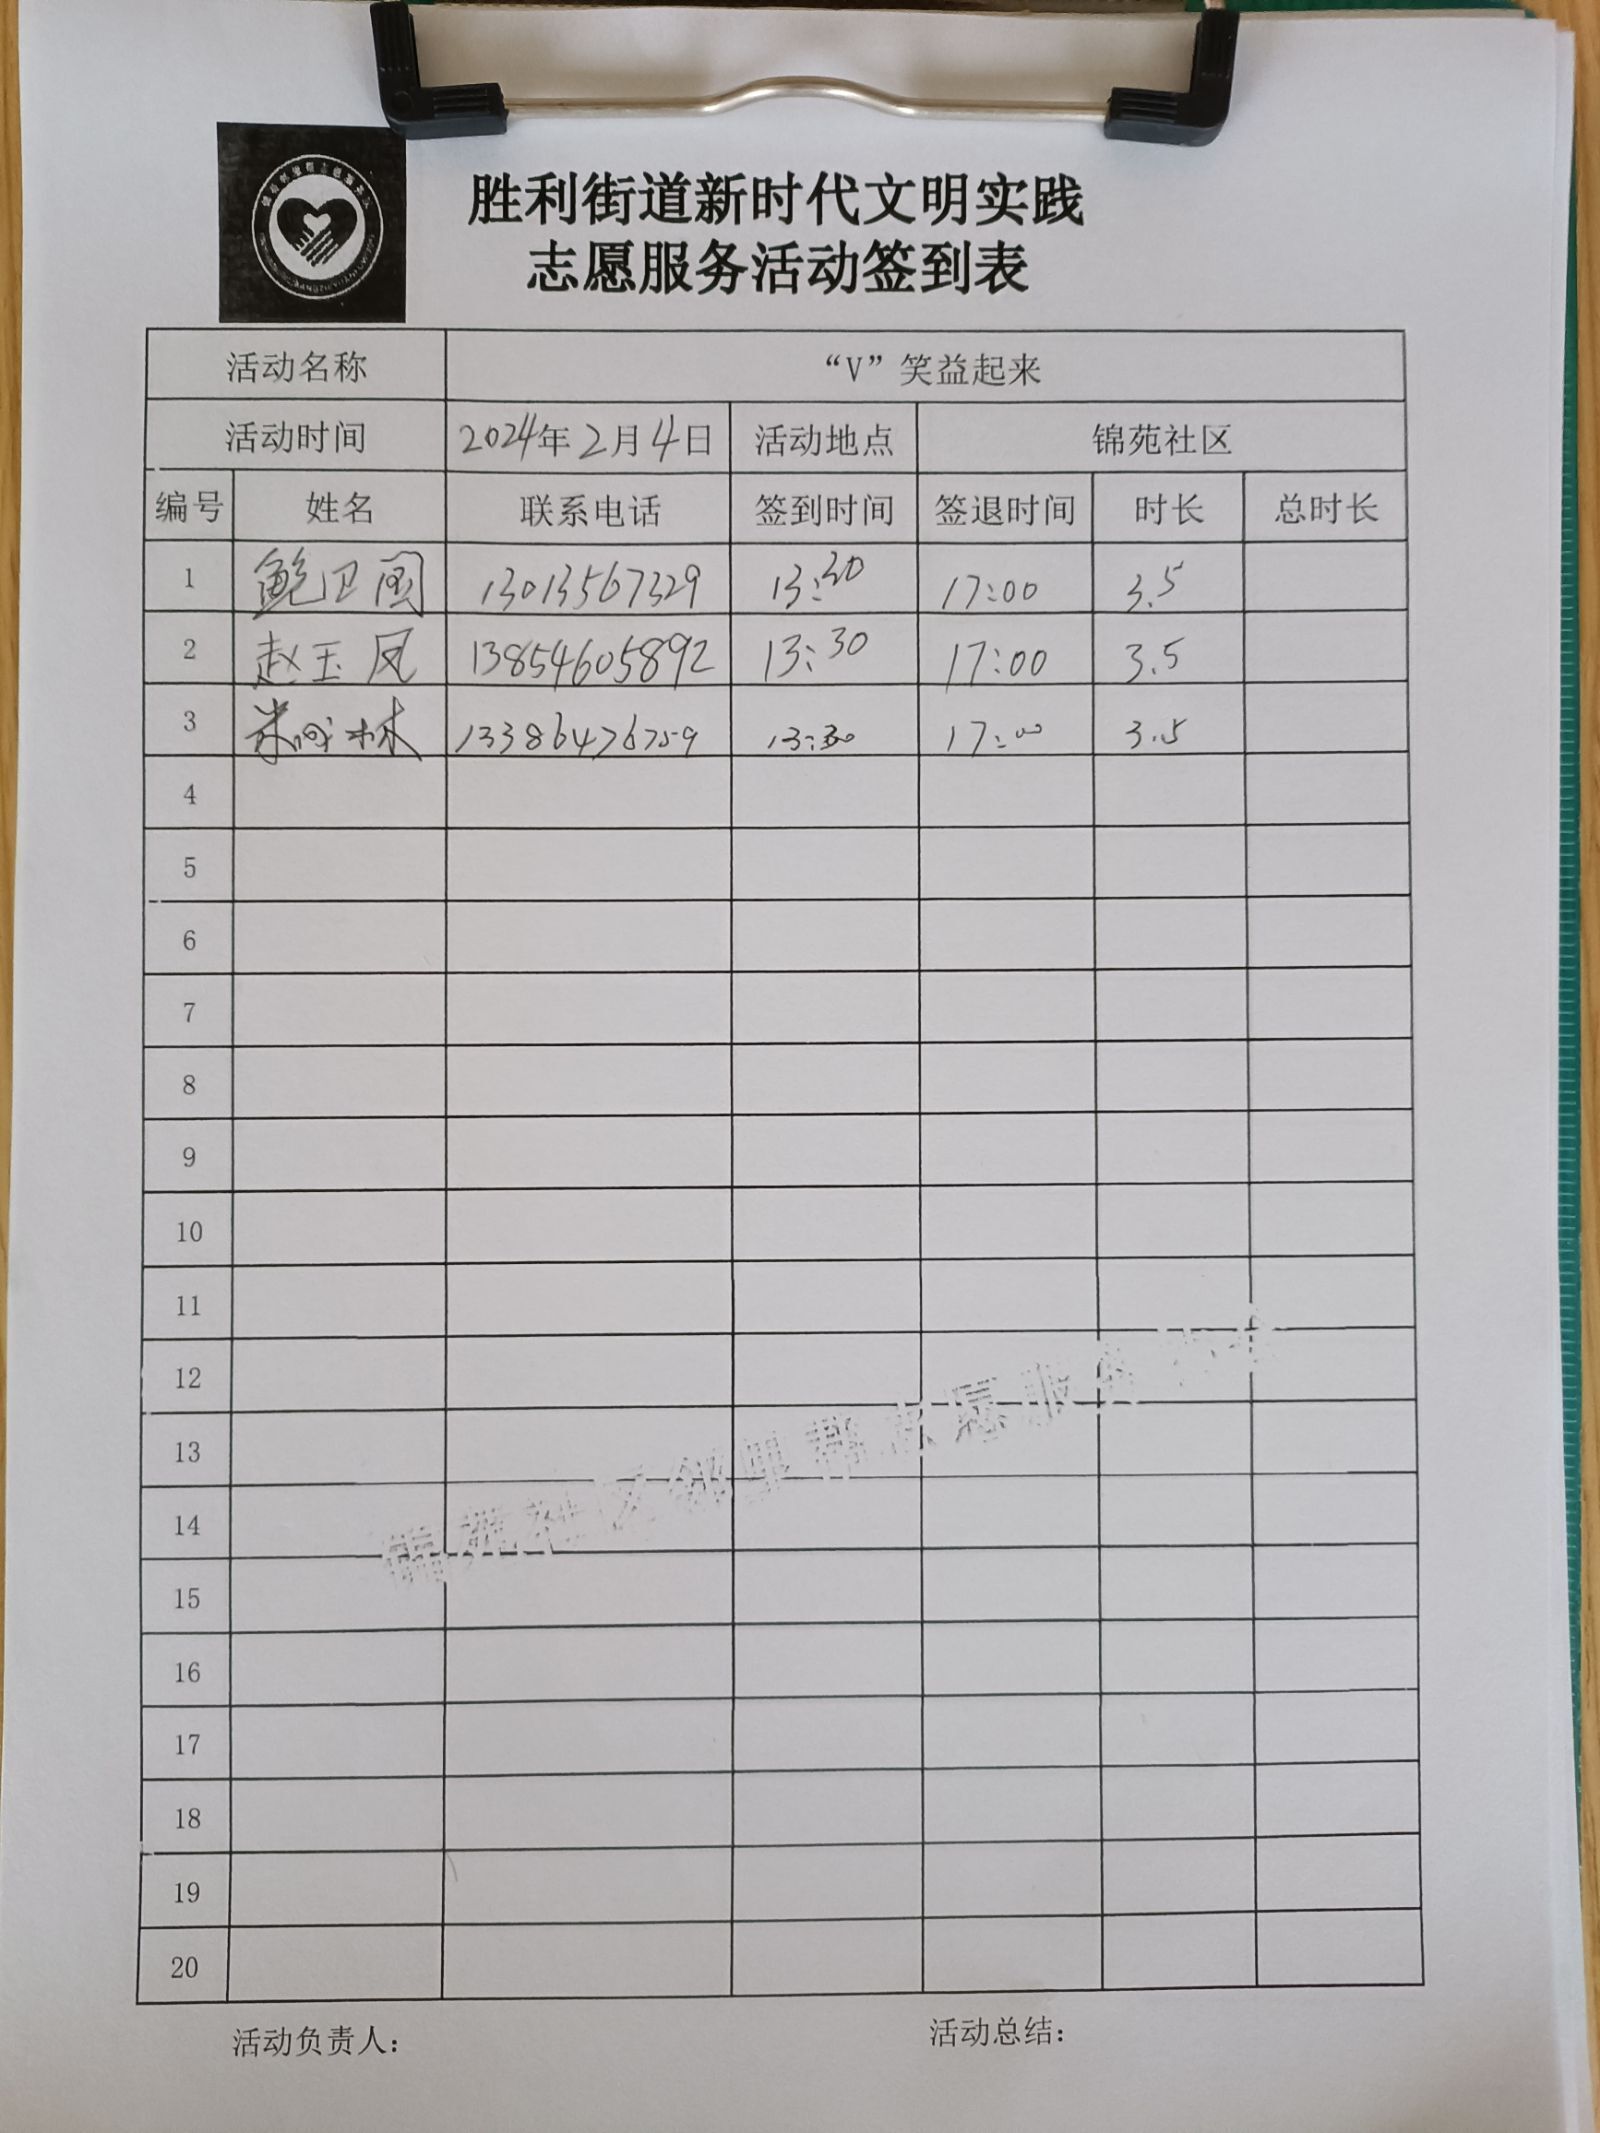 胜利街道新时代文明实践
志愿服务活动签到表
活动名称 “V”笑益起来
活动时间 2024年2月4日 活动地点 锦苑社区
编号 姓名 联系电话 签到时间 签退时间 时长 总时长
1 鲍卫国 13013567329 13:30 17:00 3.5
2 赵玉凤 13854605892 13:30 17:00 3.5
3 13386476759 13:30 17:00 3.5
4
5
6
7
8
9
10
11
12
13
14
15
16
17
18
19
20
锦苑社区邻里帮志愿服务
活动负责人：
活动总结：